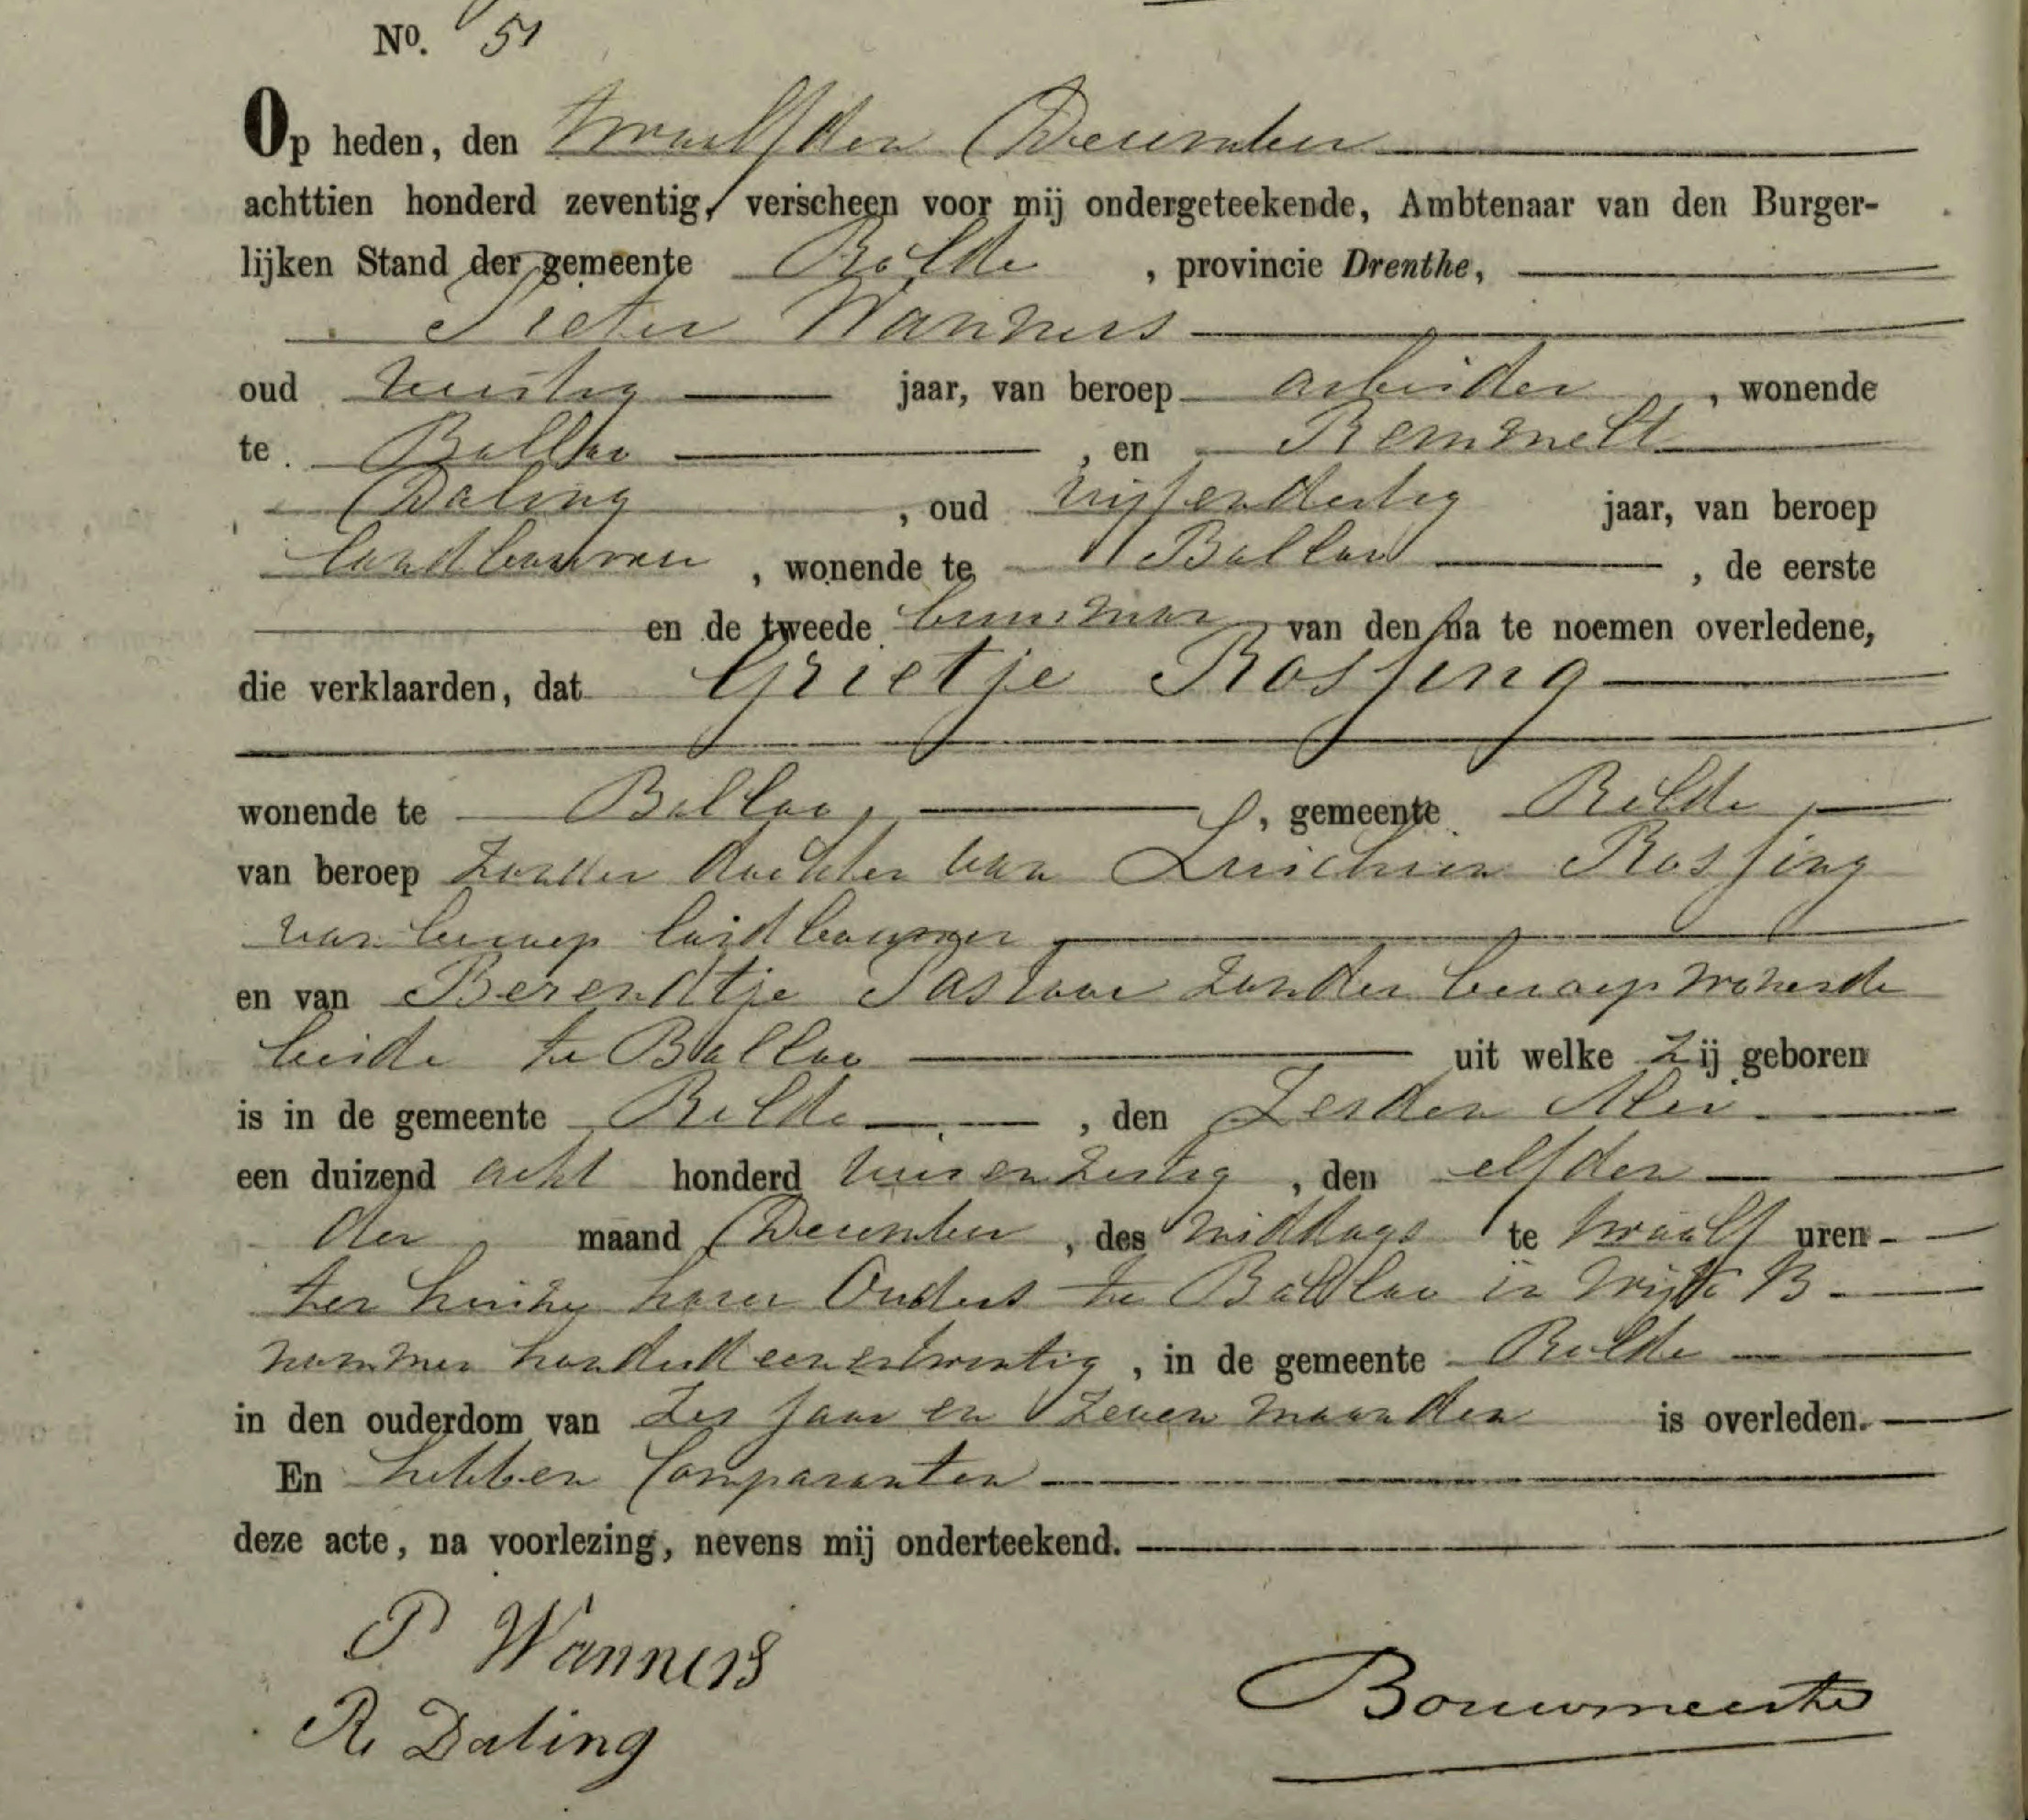 No. 51
Op heden, den twaalfden December
achttien honderd zeventig, verscheen voor mij ondergeteekende, Ambtenaar van den Burger-
lijken Stand der gemeente Rolde, provincie Drenthe,
Pieter Wanners
oud veertig jaar, van beroep arbeider, wonende
te Balloo, en Remmelt
Daling, oud vijfendertig jaar, van beroep
landbouwer, wonende te Balloo, de eerste
en de tweede van den na te noemen overledene,
die verklaarden, dat Grietje Rossing
wonende te Balloo, gemeente Rolde,
van beroep zonder dochter van Luichien Rossing
van beroep landbouwer
en van Berendtje Pastoor zonder beroep wonende
beide te Balloo uit welke zij geboren
is in de gemeente Rolde, den zesden Mei
een duizend acht honderd vierenzestig, den elfden
der maand December, des middags te twaalf uren
ten huize harer Ouders te Balloo in wijk B
nummer honderd eenentwintig, in de gemeente Rolde
in den ouderdom van zes jaar en zeven maanden is overleden.
En hebben Comparanten
deze acte, na voorlezing, nevens mij onderteekend.
P Wanners
R. Daling
Bouwmeester